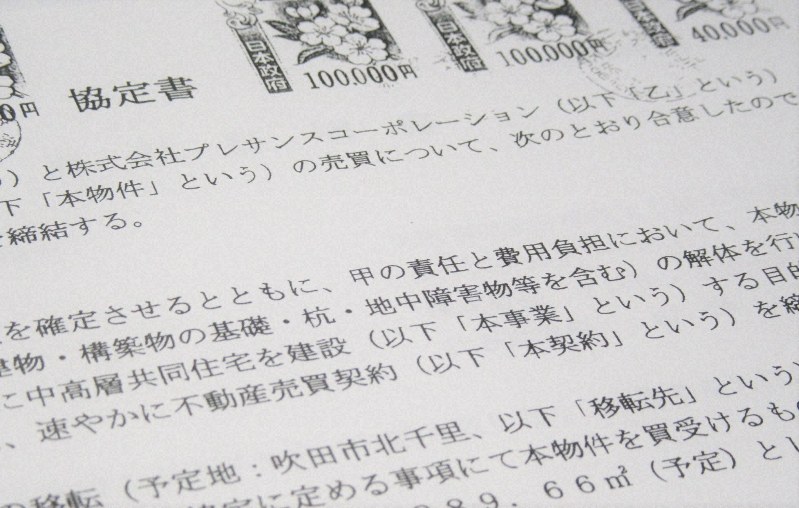 日本政府 100,000円 日本政府 100,000円 日本政府 40,000円
0円 協定書
）と株式会社プレサンスコーポレーション（以下「乙」という）
下「本物件」という）の売買について、次のとおり合意したので
締結する。
を確定させるとともに、甲の責任と費用負担において、本物
建物・構築物の基礎・杭・地中障害物等を含む）の解体を行い
に中高層共同住宅を建設（以下「本事業」という）する目的
、速やかに不動産売買契約（以下「本契約」という）を締
の移転（予定地：吹田市北千里、以下「移転先」という
に定める事項にて本物件を買受けるもの
89．66㎡（予定）とし